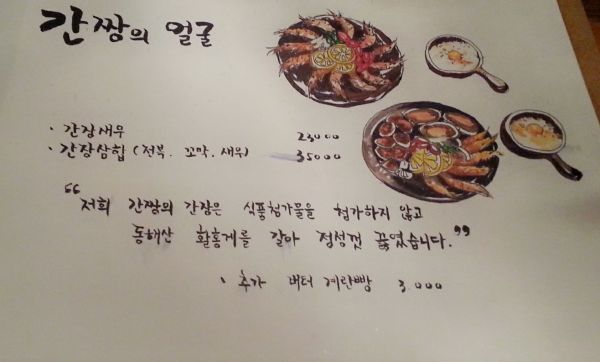 간짱의 얼굴
· 간장새우 23000
· 간장삼합 (전복. 꼬막. 새우) 35000
“저희 간짱의 간장은 식품첨가물을 첨가하지 않고
동해산 활홍게를 갈아 정성껏 끓였습니다.”
· 추가 버터 계란빵 3.000